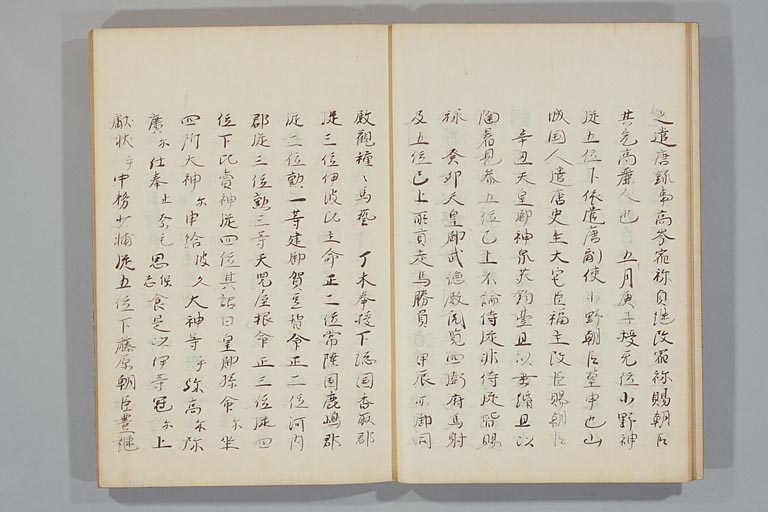 是遣唐録事高岑宿祢貞継改宿祢賜朝臣
其先高麗人也　五月庚子授无位小野神
従五位下依遣唐副使小野朝臣篁申也山
城国人遣唐史生大宅臣福主改臣賜朝臣
辛丑天皇御神泉苑釣臺且以
陶春見恭五位已上不論侍従非侍従皆賜
禄　癸卯天皇御武徳殿閲覧四衛府馬射
及五位已上所貢走馬勝負　甲辰亦御同
殿觀種々馬藝　丁未奉授下総国香取郡
従三位伊波比主命正二位常陸国鹿嶋郡
従二位勲一等建御賀豆智命正二位河内
郡従三位勲三等天児屋根命正三位従四
位下比賣神従四位其詔曰皇御孫命尓坐
四所大神尓申給波久大神等乎弥高尓弥
廣尓仕奉止奈毛思保志食是以伊等冠尓上
献状乎中務少輔従五位下藤原朝臣豊継